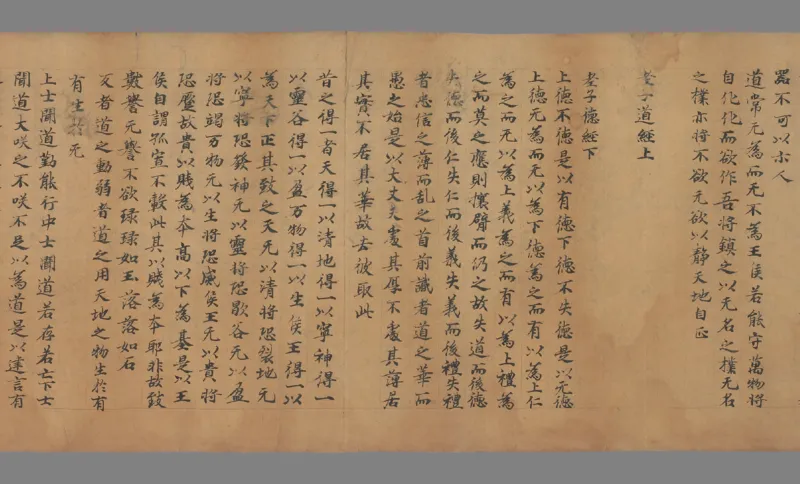 器不可以示人
道常无為而无不為王侯若能守萬物將
自化化而欲作吾將鎮之以无名之樸无名
之樸亦將不欲无欲以静天地自正
老子道經上
老子德經下
上德不德是以有德下德不失德是以无德
上德无為而无以為下德為之而有以為上仁
為之而无以為上義為之而有以為上禮為
之而莫之應則攘臂而仍之故失道而後德
失德而後仁失仁而後義失義而後禮失禮
者忠信之薄而乱之首前識者道之華而
愚之始是以大丈夫處其厚不處其薄居
其實不居其華故去彼取此
昔之得一者天得一以清地得一以寧神得一
以靈谷得一以盈万物得一以生侯王得一以
為天下正其致之天无以清將恐裂地无
以寧將恐發神无以靈將恐歇谷无以盈
將恐竭万物无以生將恐滅侯王无以貴將
恐蹷故貴以賤為本高以下為基是以王
侯自謂孤寡不轂此其以賤為本耶非故致
數譽无譽不欲琭琭如玉落落如石
反者道之動弱者道之用天地之物生於有
有生於无
上士聞道勤能行中士聞道若存若亡下士
聞道大咲之不咲不足以為道是以建言有